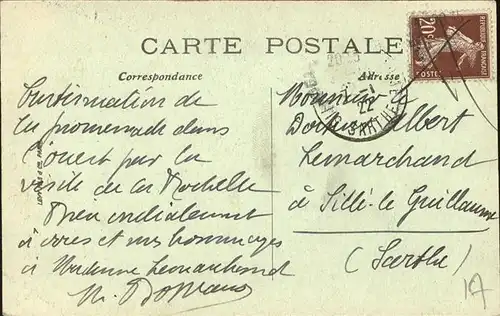 CARTE POSTALE
Correspondance
Continuation de
la promenade dans
l'ouest par la
visite de la Rochelle
Bien cordialement
à vous et mes hommages
à Madame Lemarchand
Adresse
Monsieur le
Docteur Albert
Lemarchand
à Sillé-le-Guillaume
(Sarthe)
20c
REPUBLIQUE FRANÇAISE
POSTES
SARTHE